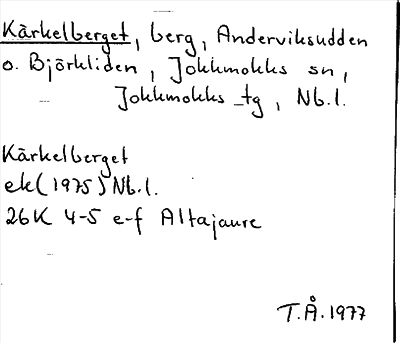 Kärkelberget, berg, Anderviksudden
o. Björkliden, Jokkmokks sn,
Jokkmokks tg, Nb.l.
Kärkelberget
ek (1975) Nb.l.
26K 4-5 e-f Altajaure
T.Å. 1977